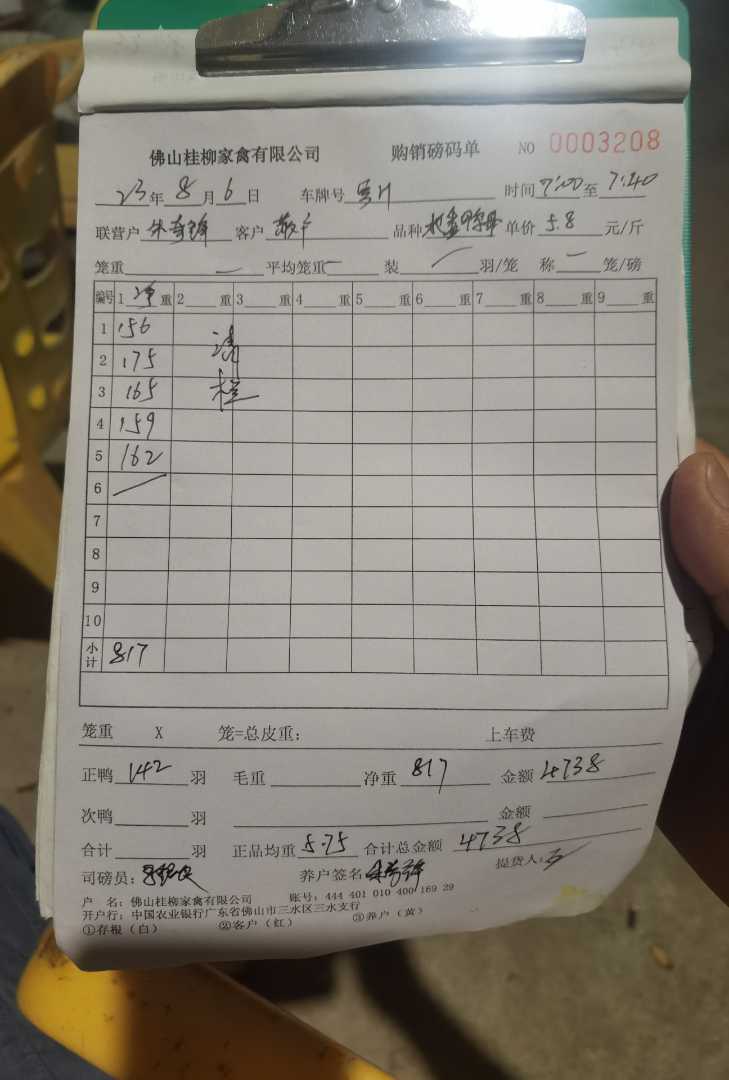 佛山桂柳家禽有限公司 购销磅码单 NO 0003208
23年8月6日 车牌号 时间7:00至7:40
联营户 客户 品种 单价5.8元/斤
笼重 — 平均笼重 — 装 / 羽/笼 称 — 笼/磅
编号 1 净重 2 重 3 重 4 重 5 重 6 重 7 重 8 重 9 重
1 156 清
2 175
3 165 栏
4 159
5 162
6
7
8
9
10
小计 817
笼重 X 笼=总皮重: 上车费
正鸭142羽 毛重 净重817 金额4738
次鸭 羽 金额
合计 羽 正品均重5.75 合计总金额4738
司磅员: 养户签名 提货人:
户 名: 佛山桂柳家禽有限公司 账号: 444 401 010 400 169 29
开户行: 中国农业银行广东省佛山市三水区三水支行
①存根(白) ②客户(红) ③养户(黄)